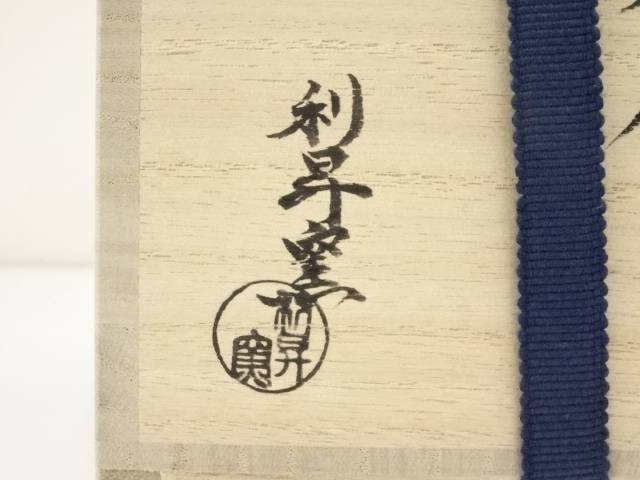 利昇窯
利昇窯